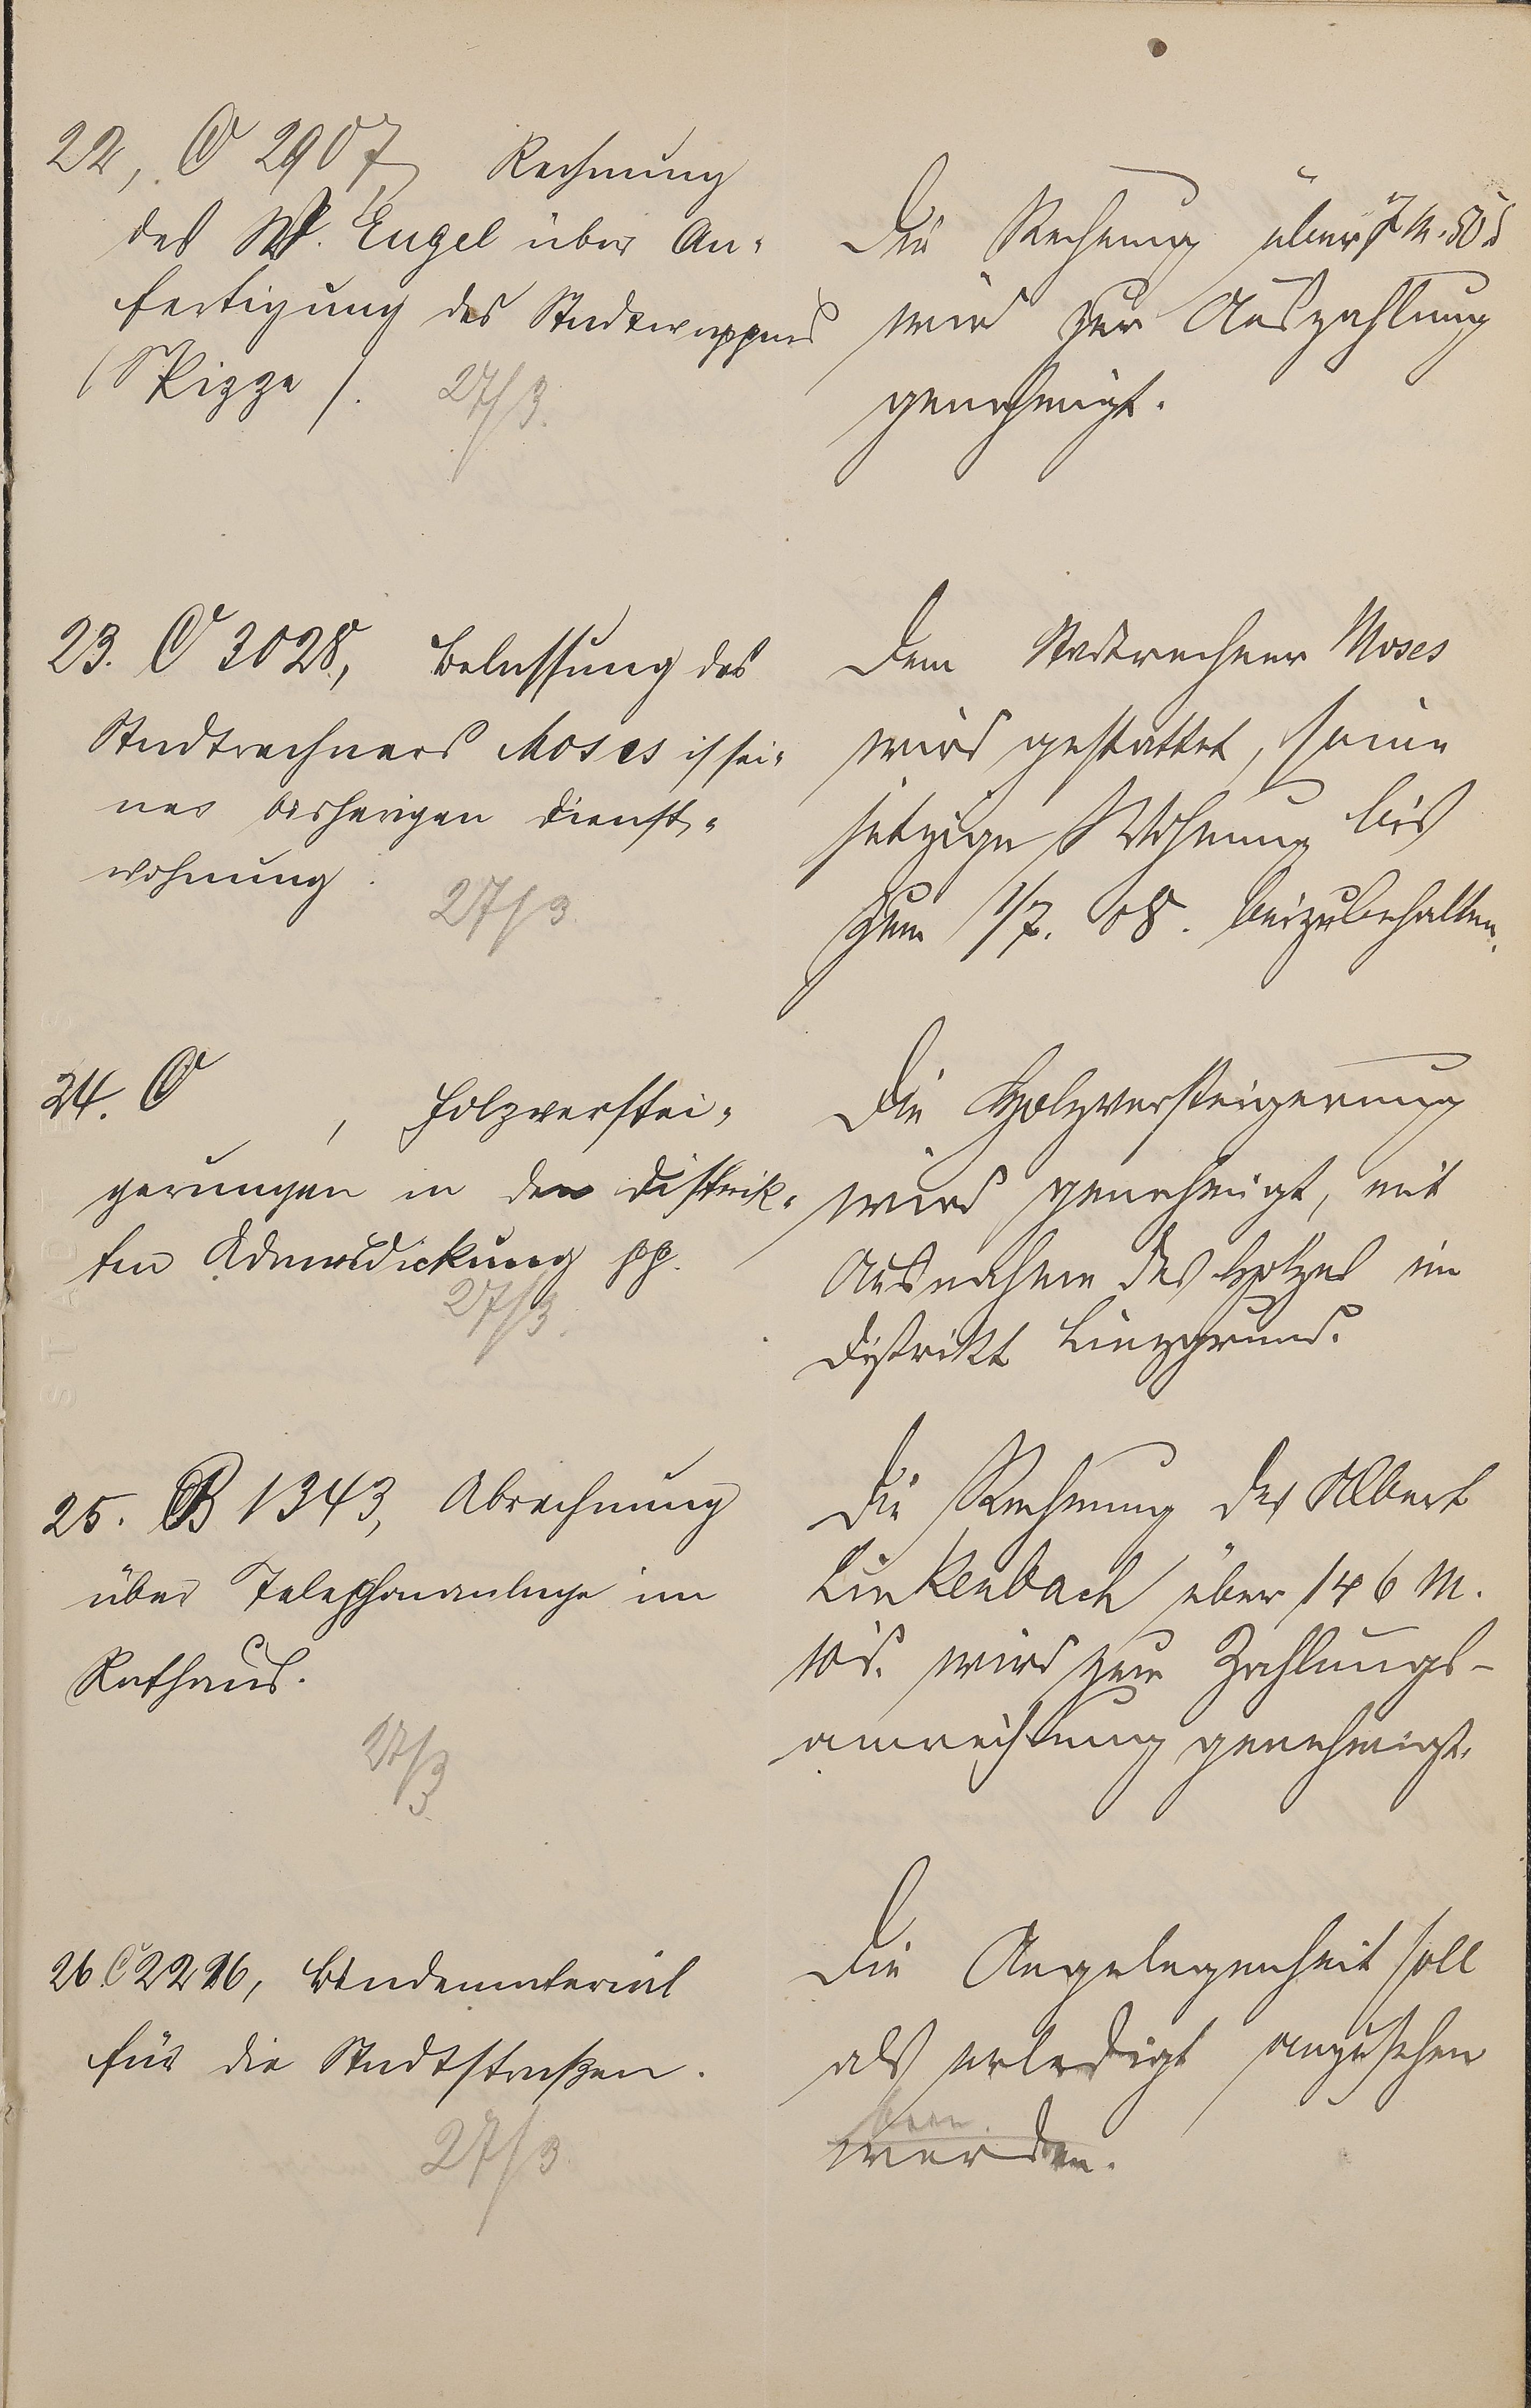 22, C 2907, Rechnung
des W. Engel über An-
fertigung des Stadtwappens
(Skizze). 27/3.
Die Rechnung über 7 M. 50 d
wird zur Auszahlung
genehmigt.
23. C 3028, Belassung des
Stadtrechners Moses i/sei-
ner bisherigen Dienst-
wohnung. 27/3.
Dem Stadtrechner Moses
wird gestattet, seine
jetzige Wohnung bis
zum 1/7. 08. beizubehalten.
24. C , Holzverstei-
gerungen in den Distrik-
ten pp.
27/3.
Die Holzversteigerung
wird genehmigt, mit
Ausnahme des Holzes im
Distrikt Linzgrund.
25. B 1343, Abrechnung
über Telephonanlage im
Rathaus.
27/3.
Die Rechnung des Albert
Linkenbach über 146 M.
10 d. wird zur Zahlungs-
anweisung genehmigt.
26 C 2226, Bindematerial
für die Stadtstraßen.
27/3.
Die Angelegenheit soll
als erledigt anzusehen
werden.